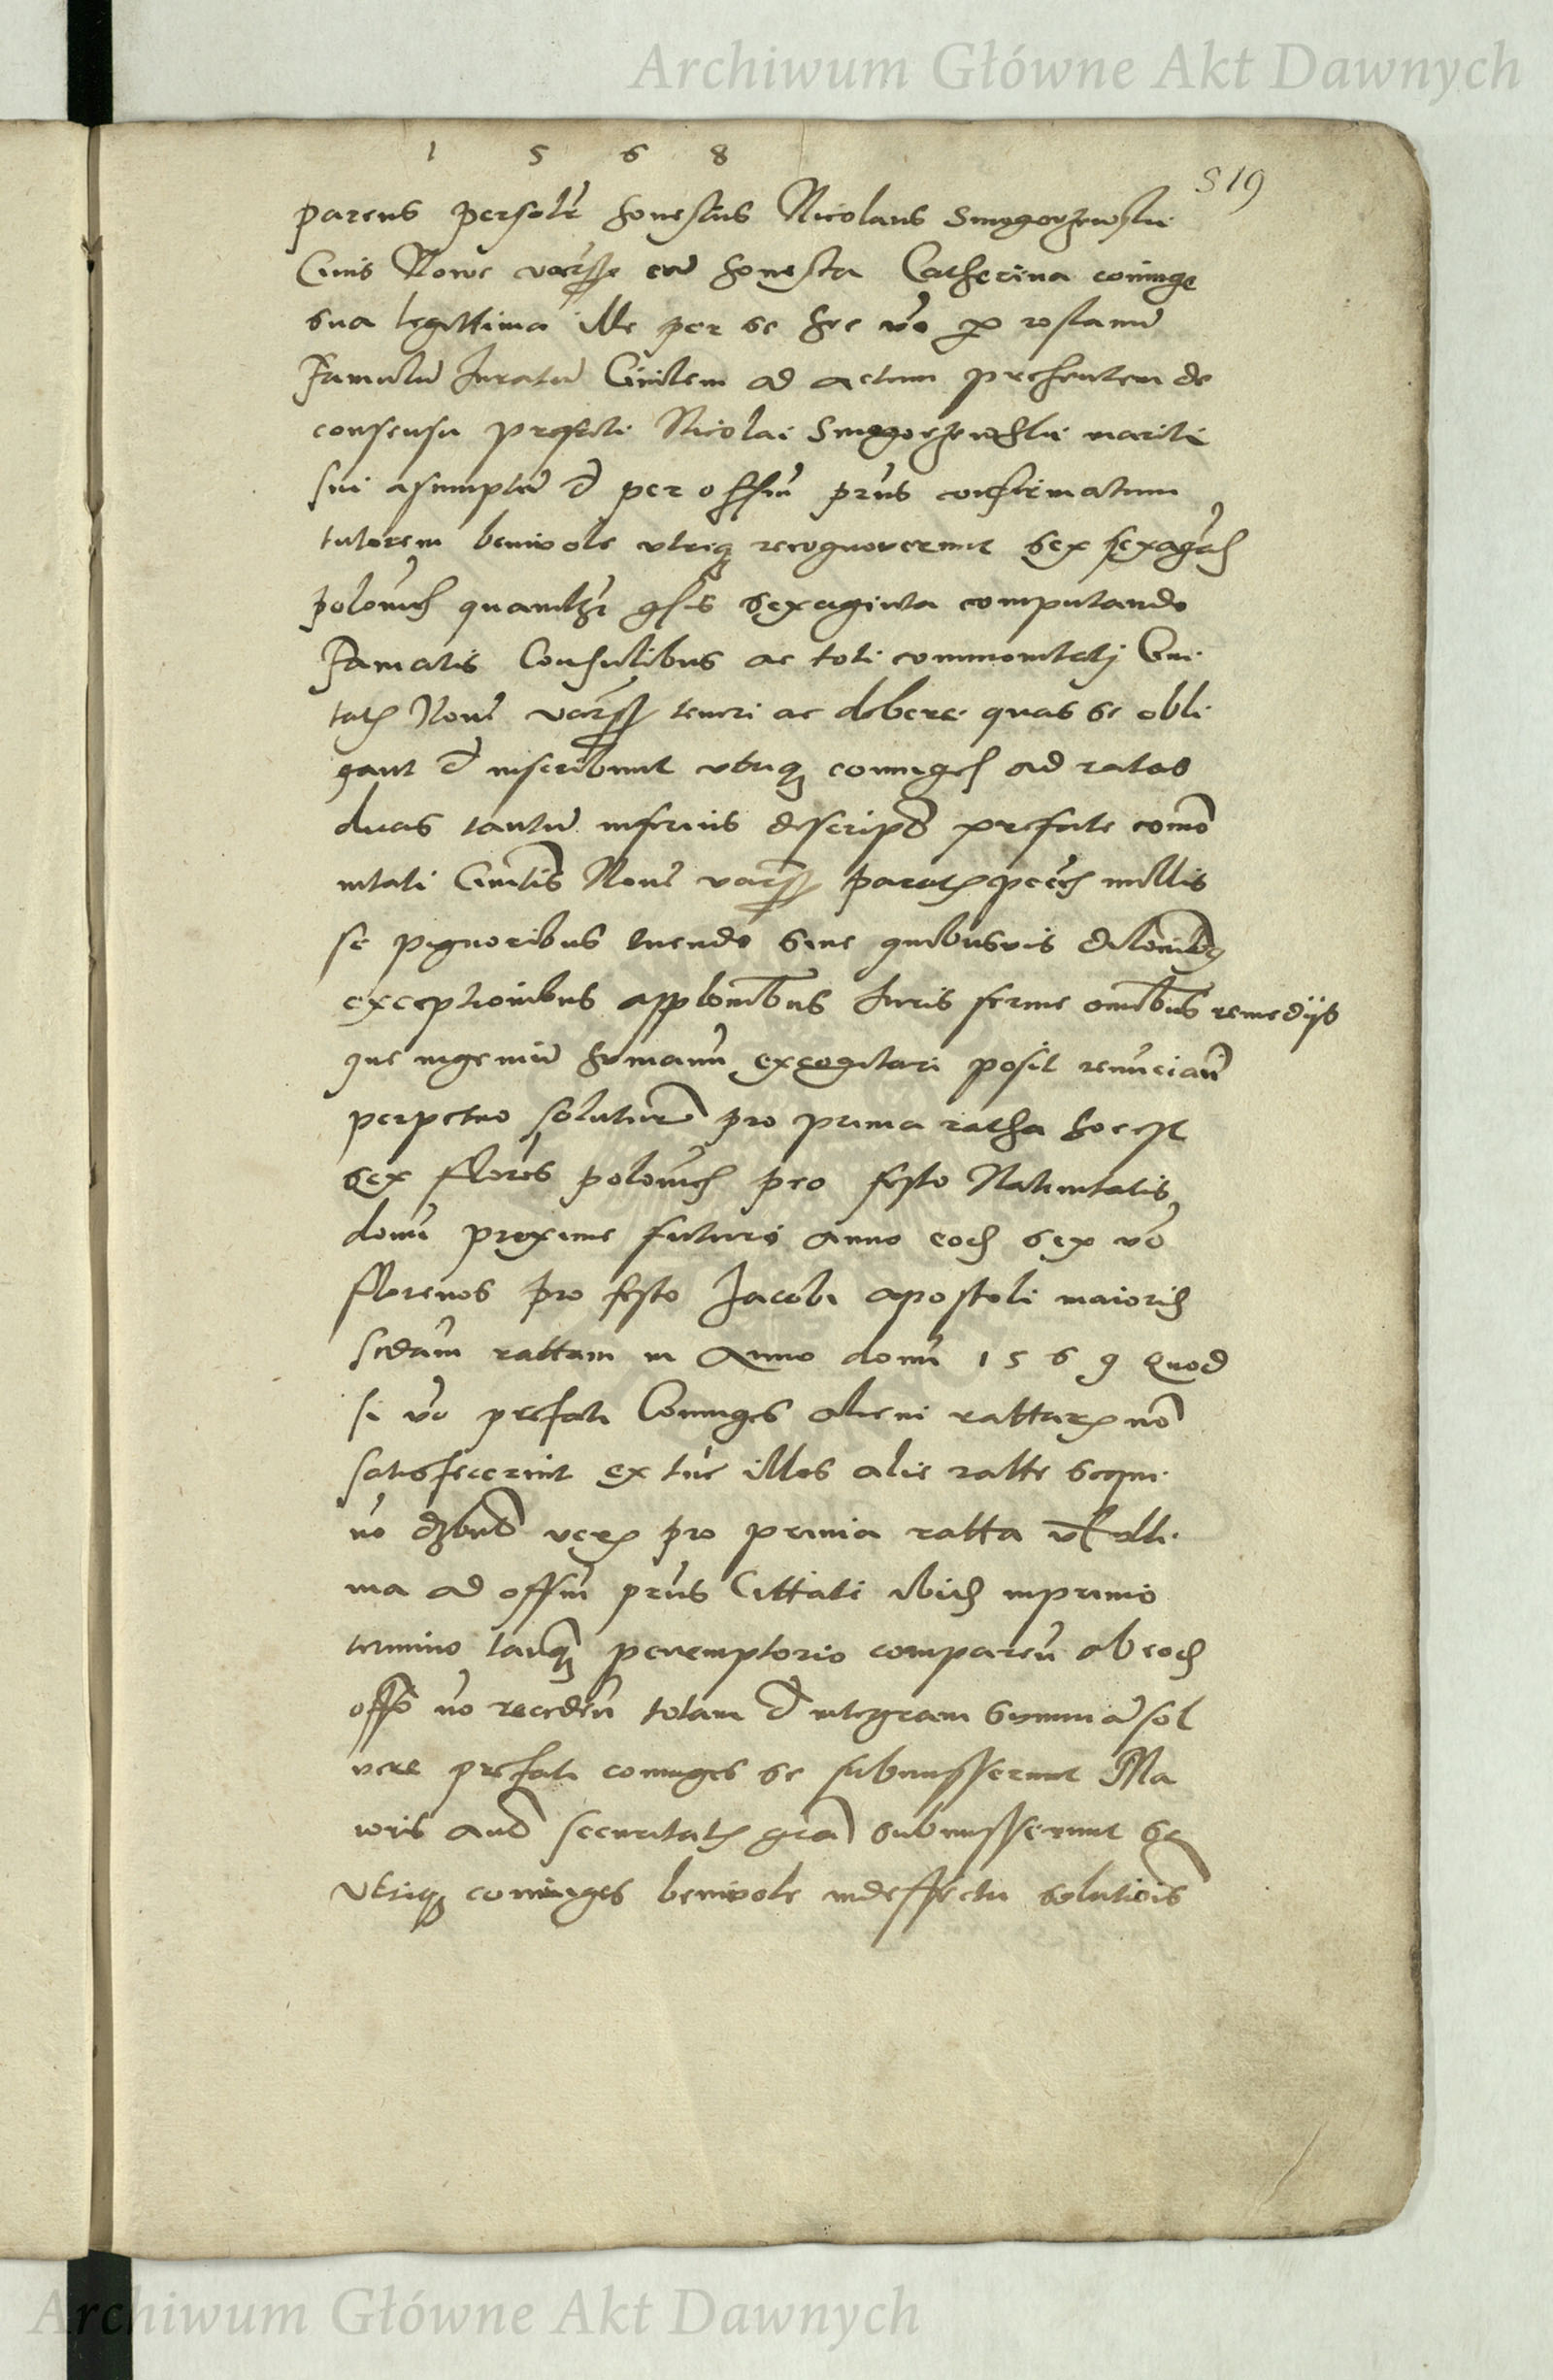 Archiwum Główne Akt Dawnych
1 5 6 8
519
parens personlr honestus Nicolaus Smogorzewski
Civis Nove varsse cum honesta Catherina coniuge
sua legittima ille per se hec vo per
Famulu Juratu Civilem ad actum presentem de
consensu prefecti Nicolai Smogorzewski mariti
sui asumptu et per offiu prns confirmatum
tutorem benivole utrique recognoverunt sex sexagenas
polonich quamlibet gssis sexaginta computando
Famatis Consulibus ac toti communitatj Civi
tatis Nove varsse teneri ac debere quas se obli
gant et inscribunt utrique coniuges ad ratas
duas tantu inferius descriptas prefate como
nitati Civitatis Nove varsse paratis peciis nullis
se pignoribus tuendo sine quibusvis dilonibus
exceptionibus applonibus Juris ferme omibus remedijs
que ingeniu humanu excogitari posit renucian
perpetuo soluturi pro prima ratha hoc est
sex florenos polonich pro festo Nativitatis
domi proxime futuro anno eodem sex vo
florenos pro festo Jacobi apostoli maioris
secdam rattam in Anno domi 1 5 6 9 Quod
si vo prefati Coniuges alicui rattaru no
satisfecerint ex tuc illos alie ratte
no vero pro prima ratta ulti
ma ad offiu prns Cittati ibidem in primo
termino tanquam peremptorio comparen ab eodem
offo no receden totam et integram summa sol
vere prefati coniuges se submisserunt Ma
ioris aute securitatis gra submisserunt se
Utrique coniuges benivole indeffectu solutiois
Archiwum Główne Akt Dawnych